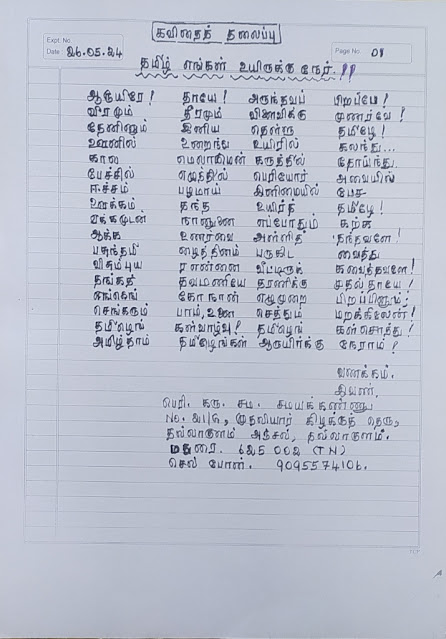 கவிதைத் தலைப்பு
Expt. No.
Date 26.05.24
Page No. 01
தமிழ் எங்கள் உயிருக்கு நேர்..!!
ஆருயிரே! தாயே! அருந்தவப் பிறப்பே!
வீரமும் தீரமும் விளைவிக்கு முணர்வே!
தேனினும் இனிய தெள்ளு தமிழே!
ஊனில் உறைந்து உயிரில் கலந்து...
கால மெலாமென் கருத்தில் தோய்ந்து
பேச்சில் எழுத்தில் பெரியோர் அவையில்
ஈச்சம் பழமாய் இனிமையில் பேச
ஊக்கம் தந்த உயிர்த் தமிழே!
ஏக்கமுடன் நானுனை எப்போதும் கற்க
ஆக்க உணர்வை அள்ளித் தந்தவளே!
பசுந்தமி ழைத்தினம் பருகிட வைத்து
வியப்புற என்னை வீட்டிருக் கவைத்தவளே!
தங்கத் தவமணியே தரணிக்கு முதல்தாயே!
எங்கெங் கோநான் எழுமுறை பிறப்பினும்;
செங்கரும் பாம், உனை செத்தும் மறக்கிலேன்!
தமிழெங் கள்வாழ்வு! தமிழெங் கள்சொத்து!
அமிழ்தாம் தமிழெங்கள் ஆருயிர்க்கு நேராம்!
வணக்கம்.
இவண்,
பெரி. கரு. சம. சமயக்கண்ணு
No. 21/6, முதலியார் கிழக்குத் தெரு,
தல்லாகுளம் அஞ்சல், தல்லாகுளம்.
மதுரை. 625 002 (TN)
செல் போன். 9095574106.